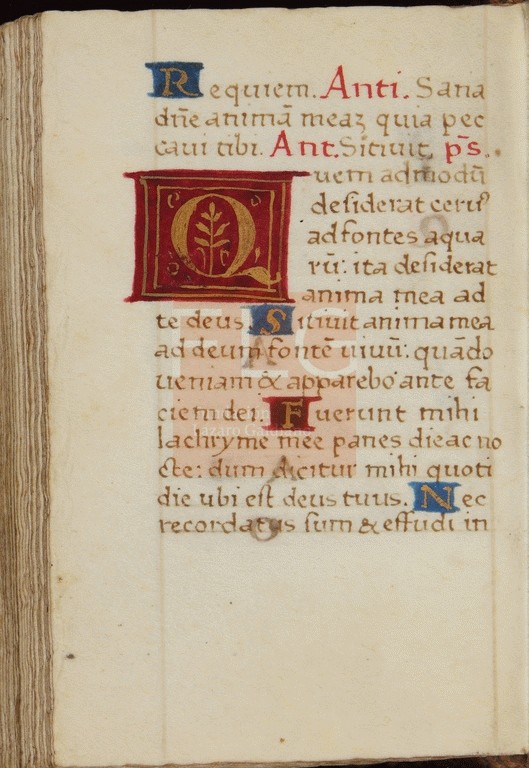 Requiem. Anti. Sana
dñe animã meaȝ quia pec
caui tibi. Ant. Sitiuit. p̃s.
Quem admodũ
desiderat ceruꝰ
ad fontes aqua
rũ: ita desiderat
anima mea ad
te deus. Sitiuit anima mea
ad deum fontẽ uiuũ: quãdo
ueniam & apparebo ante fa
ciem dei. Fuerunt mihi
lachryme mee panes die ac no
cte: dum dicitur mihi quoti
die ubi est deus tuus. Nec
recordatus sum & effudi in
FLG
Lázaro Galdiano